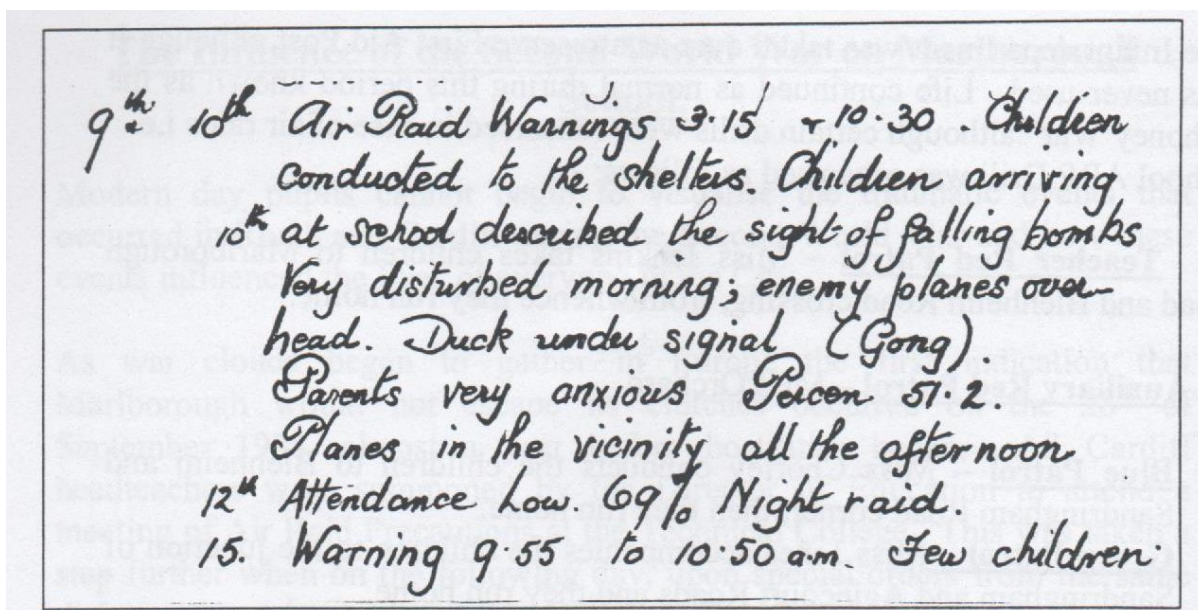 9th 10th Air Raid Warnings 3.15 & 10.30 Children
conducted to the shelters. Children arriving
10th at school described the sight of falling bombs
Very disturbed morning; enemy planes over-
head. Duck under signal (Gong).
Parents very anxious Percen 51.2.
Planes in the vicinity all the afternoon
12th Attendance low. 69% Night raid.
15. Warning 9.55 to 10.50 am. Few children